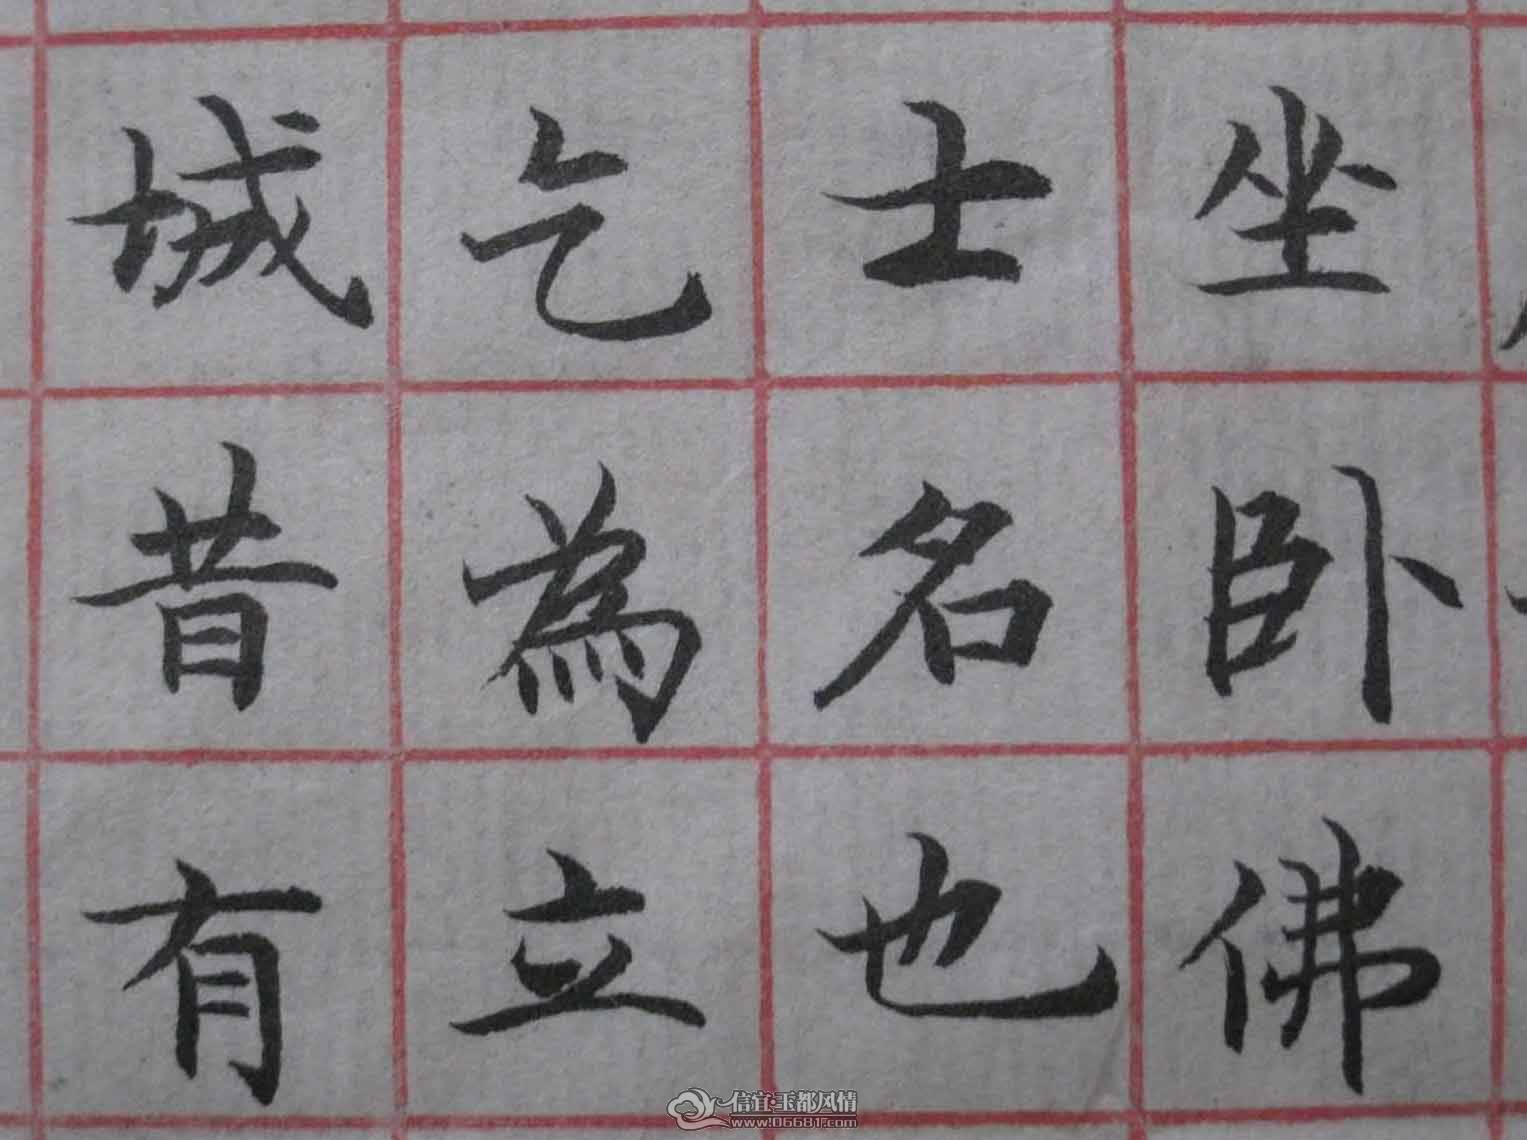 坐卧佛
士名也
乞為立
城昔有
信宜·玉都风情
www.06681.com